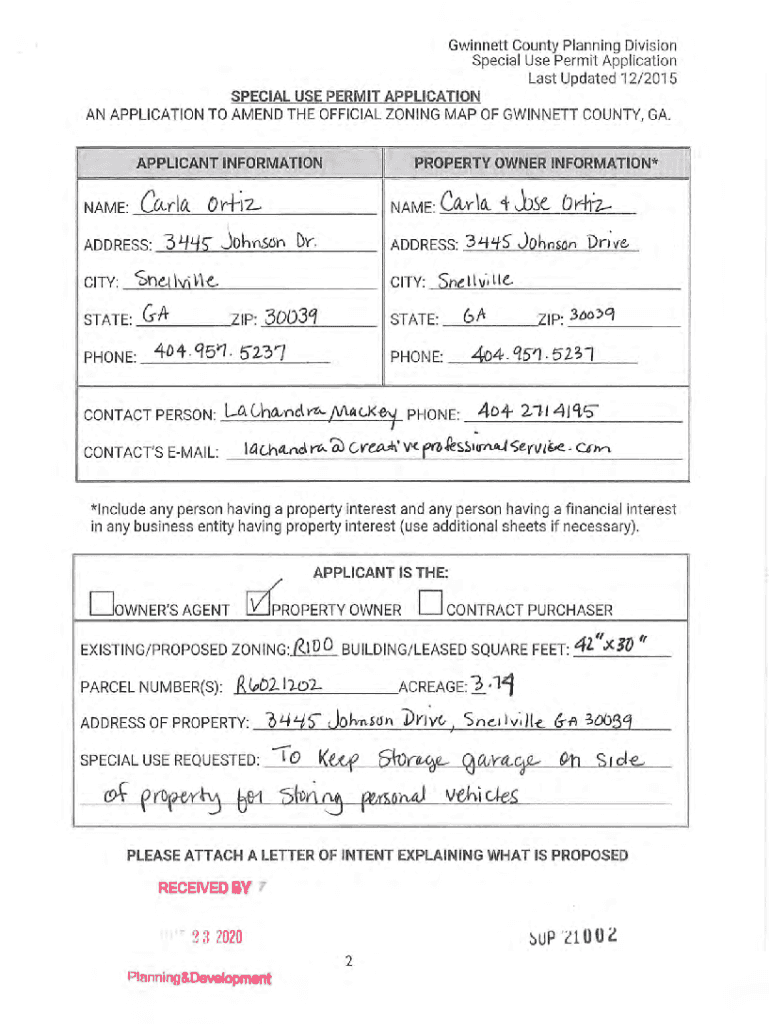 Gwinnett County Planning Division
Special Use Permit Application
Last Updated 12/2015
SPECIAL USE PERMIT APPLICATION
AN APPLICATION TO AMEND THE OFFICIAL ZONING MAP OF GWINNETT COUNTY, GA.
APPLICANT INFORMATION PROPERTY OWNER INFORMATION*
NAME: Carla Ortiz NAME: Carla & Jose Ortiz
ADDRESS: 3445 Johnson Dr. ADDRESS: 3445 Johnson Drive
CITY: Snellville CITY: Snellville
STATE: GA ZIP: 30039 STATE: GA ZIP: 30039
PHONE: 404.957.5237 PHONE: 404.957.5237
CONTACT PERSON: LaChandra Mackey PHONE: 404 271 4195
CONTACT'S E-MAIL: lachandra@creativeprofessionalservice.com
*Include any person having a property interest and any person having a financial interest
in any business entity having property interest (use additional sheets if necessary).
APPLICANT IS THE:
OWNER'S AGENT PROPERTY OWNER CONTRACT PURCHASER
EXISTING/PROPOSED ZONING: R100 BUILDING/LEASED SQUARE FEET: 42"x30"
PARCEL NUMBER(S): R6021202 ACREAGE: 3.74
ADDRESS OF PROPERTY: 3445 Johnson Drive, Snellville GA 30039
SPECIAL USE REQUESTED: To Keep Storage garage on side
of property for Storing personal vehicles
PLEASE ATTACH A LETTER OF INTENT EXPLAINING WHAT IS PROPOSED
RECEIVED BY
23 2020 SUP '21002
2
Planning&Development